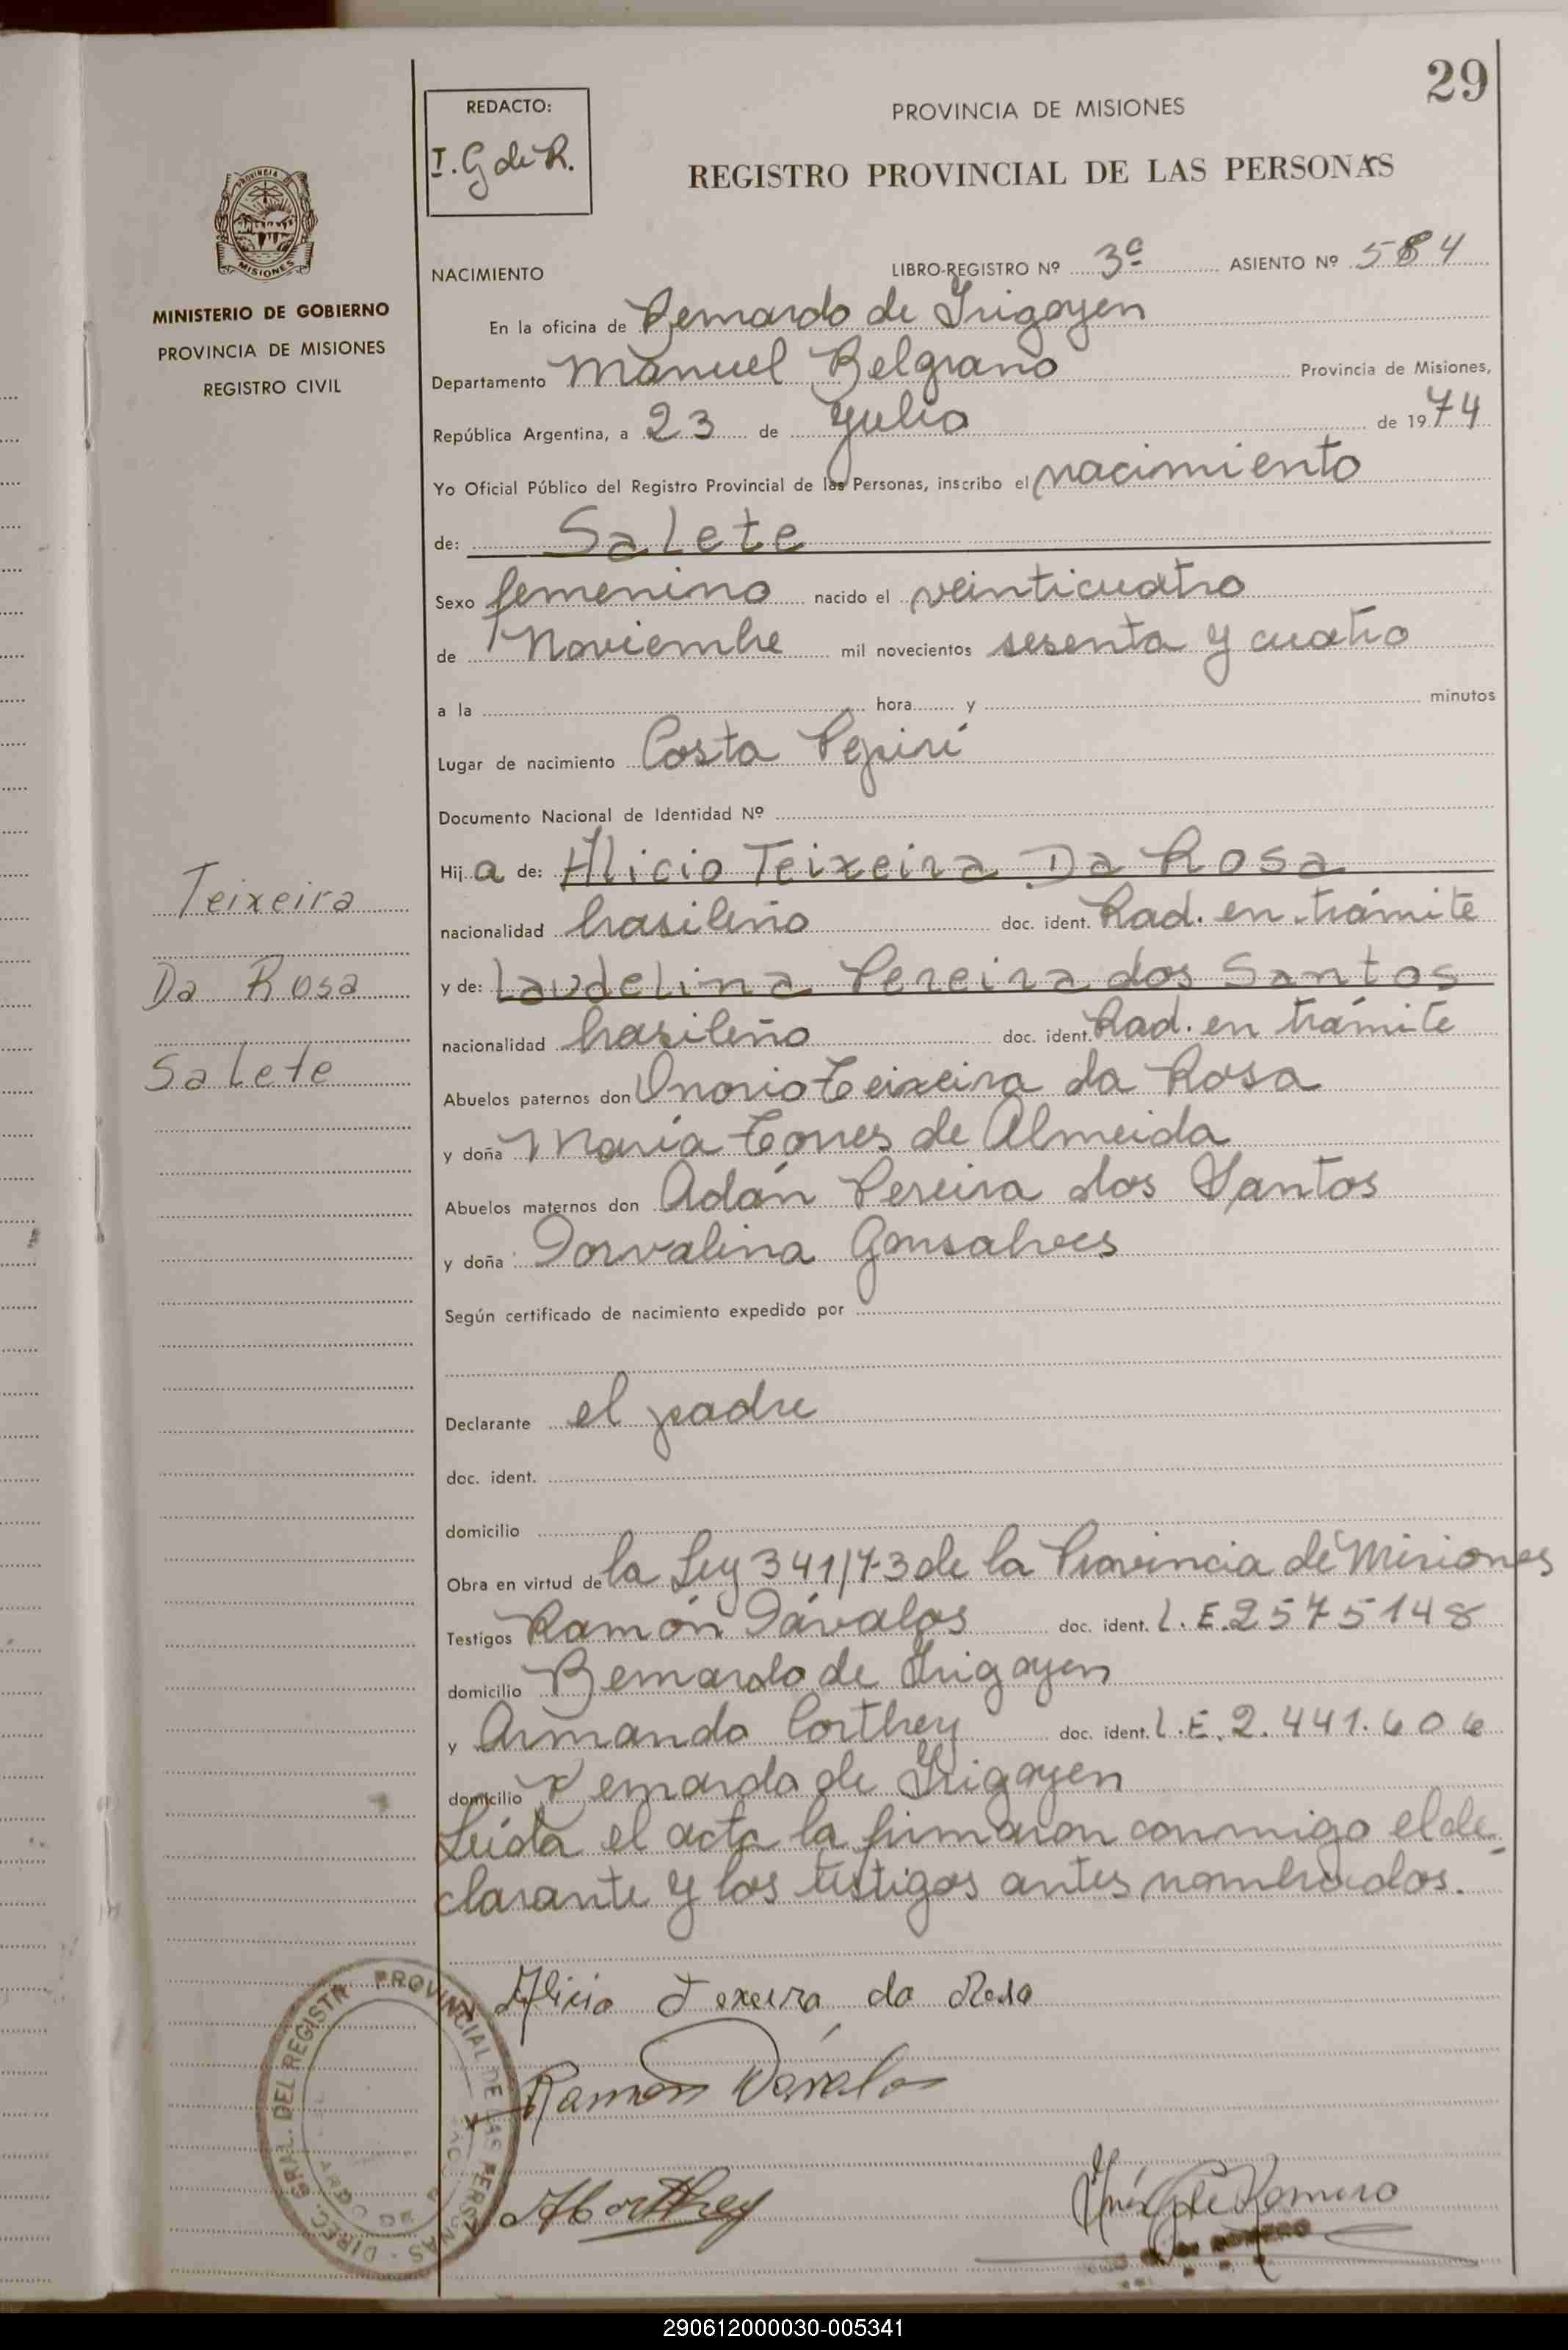 29
REDACTO:
I. G de R.
PROVINCIA DE MISIONES
REGISTRO PROVINCIAL DE LAS PERSONAS
PROVINCIA
MISIONES
MINISTERIO DE GOBIERNO
PROVINCIA DE MISIONES
REGISTRO CIVIL
NACIMIENTO LIBRO-REGISTRO Nº 3º ASIENTO Nº 584
En la oficina de Bernardo de Irigoyen
Departamento Manuel Belgrano Provincia de Misiones,
República Argentina, a 23 de Julio de 1974
Yo Oficial Público del Registro Provincial de las Personas, inscribo el nacimiento
de: Salete
Sexo femenino nacido el veinticuatro
de Noviembre mil novecientos sesenta y cuatro
a la hora y minutos
Lugar de nacimiento Costa Pepirí
Documento Nacional de Identidad Nº
Hija de: Alicio Teixeira Da Rosa
Teixeira
nacionalidad brasileño doc. ident. Rad. en trámite
Da Rosa
y de: Laudelina Pereira dos Santos
nacionalidad brasileño doc. ident. Rad. en trámite
Salete
Abuelos paternos don Onorio Teixeira da Rosa
y doña María Torres de Almeida
Abuelos maternos don Adán Pereira dos Santos
y doña Dorvalina Gonsalves
Según certificado de nacimiento expedido por
Declarante el padre
doc. ident.
domicilio
Obra en virtud de la Ley 341/73 de la Provincia de Misiones
Testigos Ramón Dávalos doc. ident. L.E.2575148
domicilio Bernardo de Irigoyen
y Armando Corthey doc. ident. L.E. 2.441.606
domicilio Bernardo de Irigoyen
Leída el acta la firmaron conmigo el de-
clarante y los testigos antes nombrados.
Alicio Texeira da Rosa
Ramón Dávalos
ACorthey
Inés G de Romero
DIREC. GRAL. DEL REGISTR PROVINCIAL DE LAS PERSONAS
ROMERO
290612000030-005341